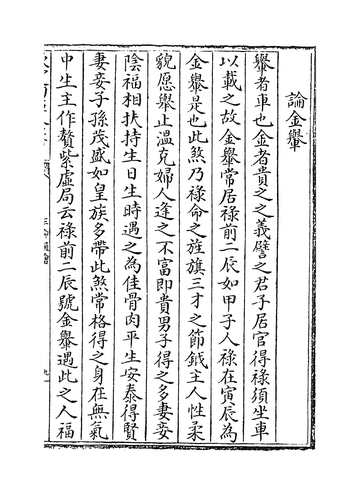 論金轝
轝者車也金者貴之之義譬之君子居官得祿須坐車
以載之故金轝常居祿前二辰如甲子人祿在寅辰為
金轝是也此煞乃祿命之旌旗三才之節鉞主人性柔
貌愿舉止溫克婦人逢之不富即貴男子得之多妻妾
陰福相扶持生日生時遇之為佳骨肉平生安泰得賢
妻妾子孫茂盛如皇族多帶此煞常格得之身在無氣
中生主作贅紫虛局云祿前二辰號金轝遇此之人福